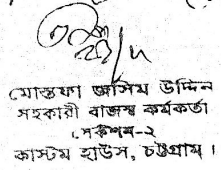 মোস্তফা আসিম উদ্দিন
সহকারী রাজস্ব কর্মকর্তা
সেকশন-২
কাস্টম হাউস, চট্টগ্রাম।